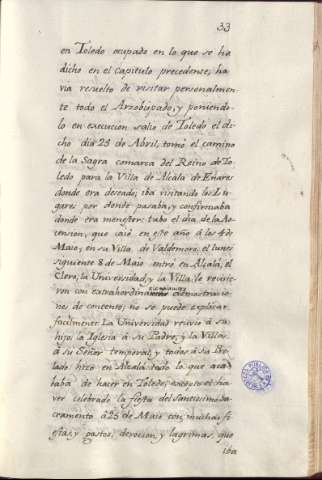 33
en Toledo ocupado en lo que se ha
dicho en el capitulo precedente, ha
via resuelto de visitar personalmen
te todo el Arzobispado, y poniendo
lo en execucion salio de Toledo el di
cho dia 23 de Abril, tomó el camino
de la Sagra comarca del Reino de To
ledo para la Villa de Alcala de Enares
donde era deseado; iba visitando los Lu
gares por donde pasaba, y confirmaba
donde era menester: tubo el dia de la As
cension, que caió en este año á los 4 de
Maio, en su Villa de Valdemoro. el lunes
siguiente 8 de Maio entró en Alcalá, el
Clero, la Universidad, y la Villa le recivie
ron con extrahordinarias demostracio
nes de contento; no se puede explicar
facilmente. La Universidad recivio á su
hijo, la Iglesia á su Padre, y la Villa
á su Señor temporal, y todas á su Pre
lado. hizo en Alcalá todo lo que aca
baba de hacer en Toledo, excepto el ha
ver celebrado la fiesta del Santissimo Sa
cramento á 25 de Maio con muchas fi
estas, y gastos, devocion, y lagrimas, que
iba